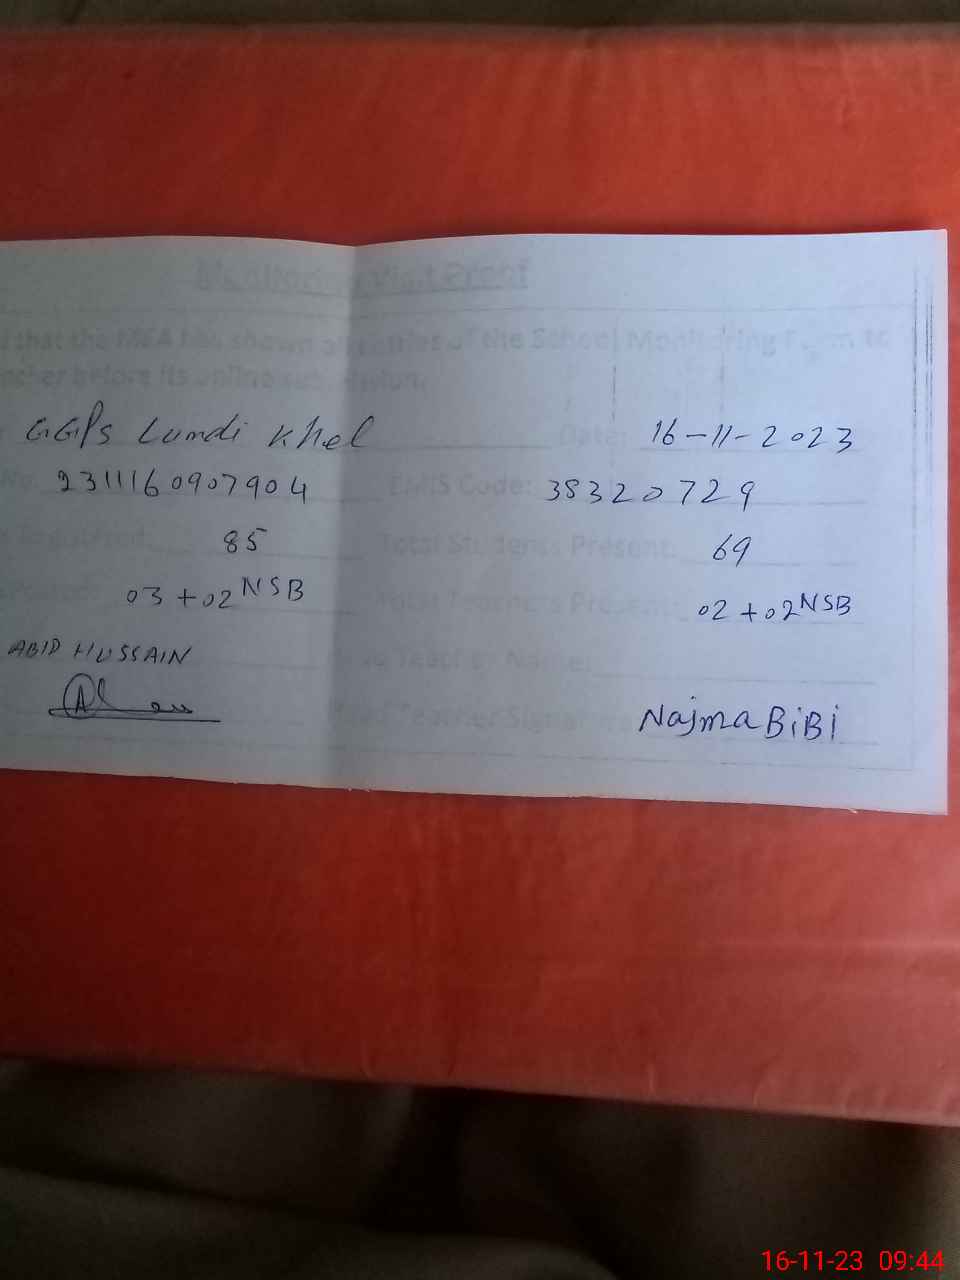 Monitoring Visit Proof
d that the MEA has shown all entries of the School Monitoring Form to
acher before its online submission.
GGPS Lundi Khel Date: 16-11-2023
No. 2311160907904 EMIS Code: 38320729
Registered: 85 Total Students Present: 69
Posted: 03+02 NSB Total Teachers Present: 02+02 NSB
ABID HUSSAIN Teacher Name:
Head Teacher Signature Najma BiBi
16-11-23 09:44